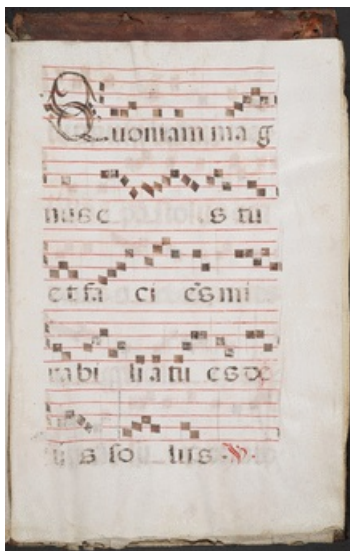 Quoniam ma g
nus e s tu
et fa ci e͂s mi
ra bi li a tu es de
us so lus ℣.